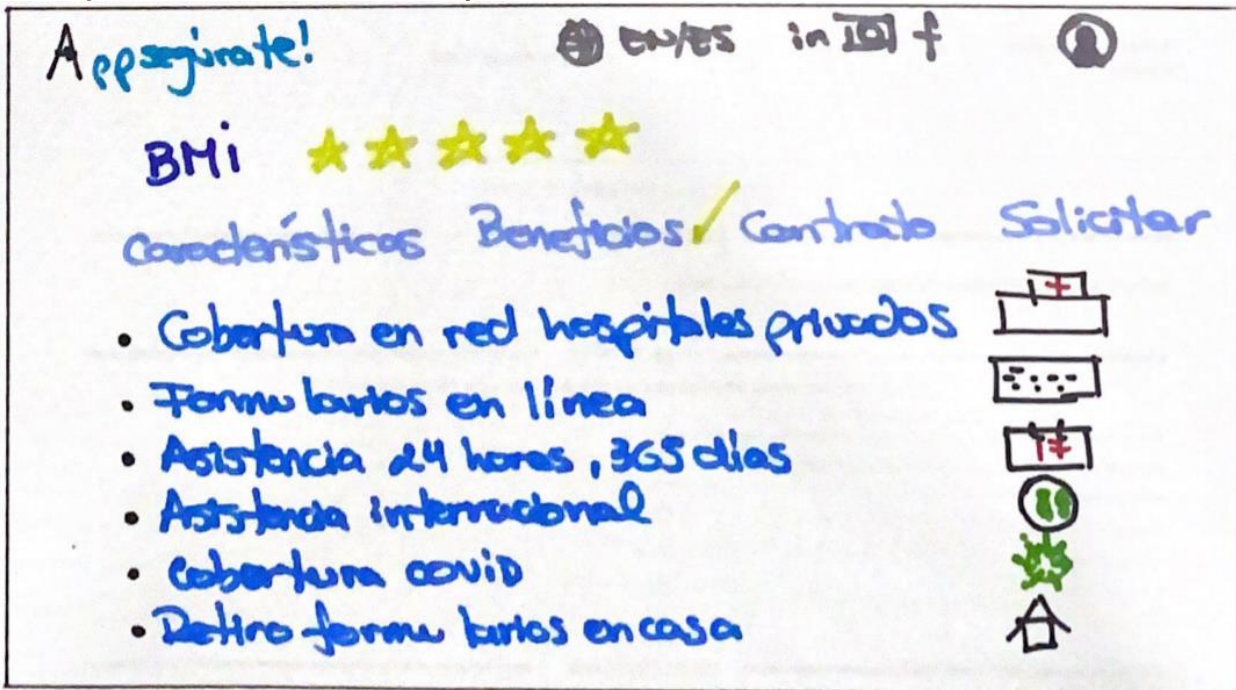 Appsegúrate! EN/ES in f
BMi
Características Beneficios Contrato Solicitar
• Cobertura en red hospitales privados
• Formularios en línea
• Asistencia 24 horas, 365 días
• Asistencia internacional
• Cobertura covid
• Retiro formularios en casa